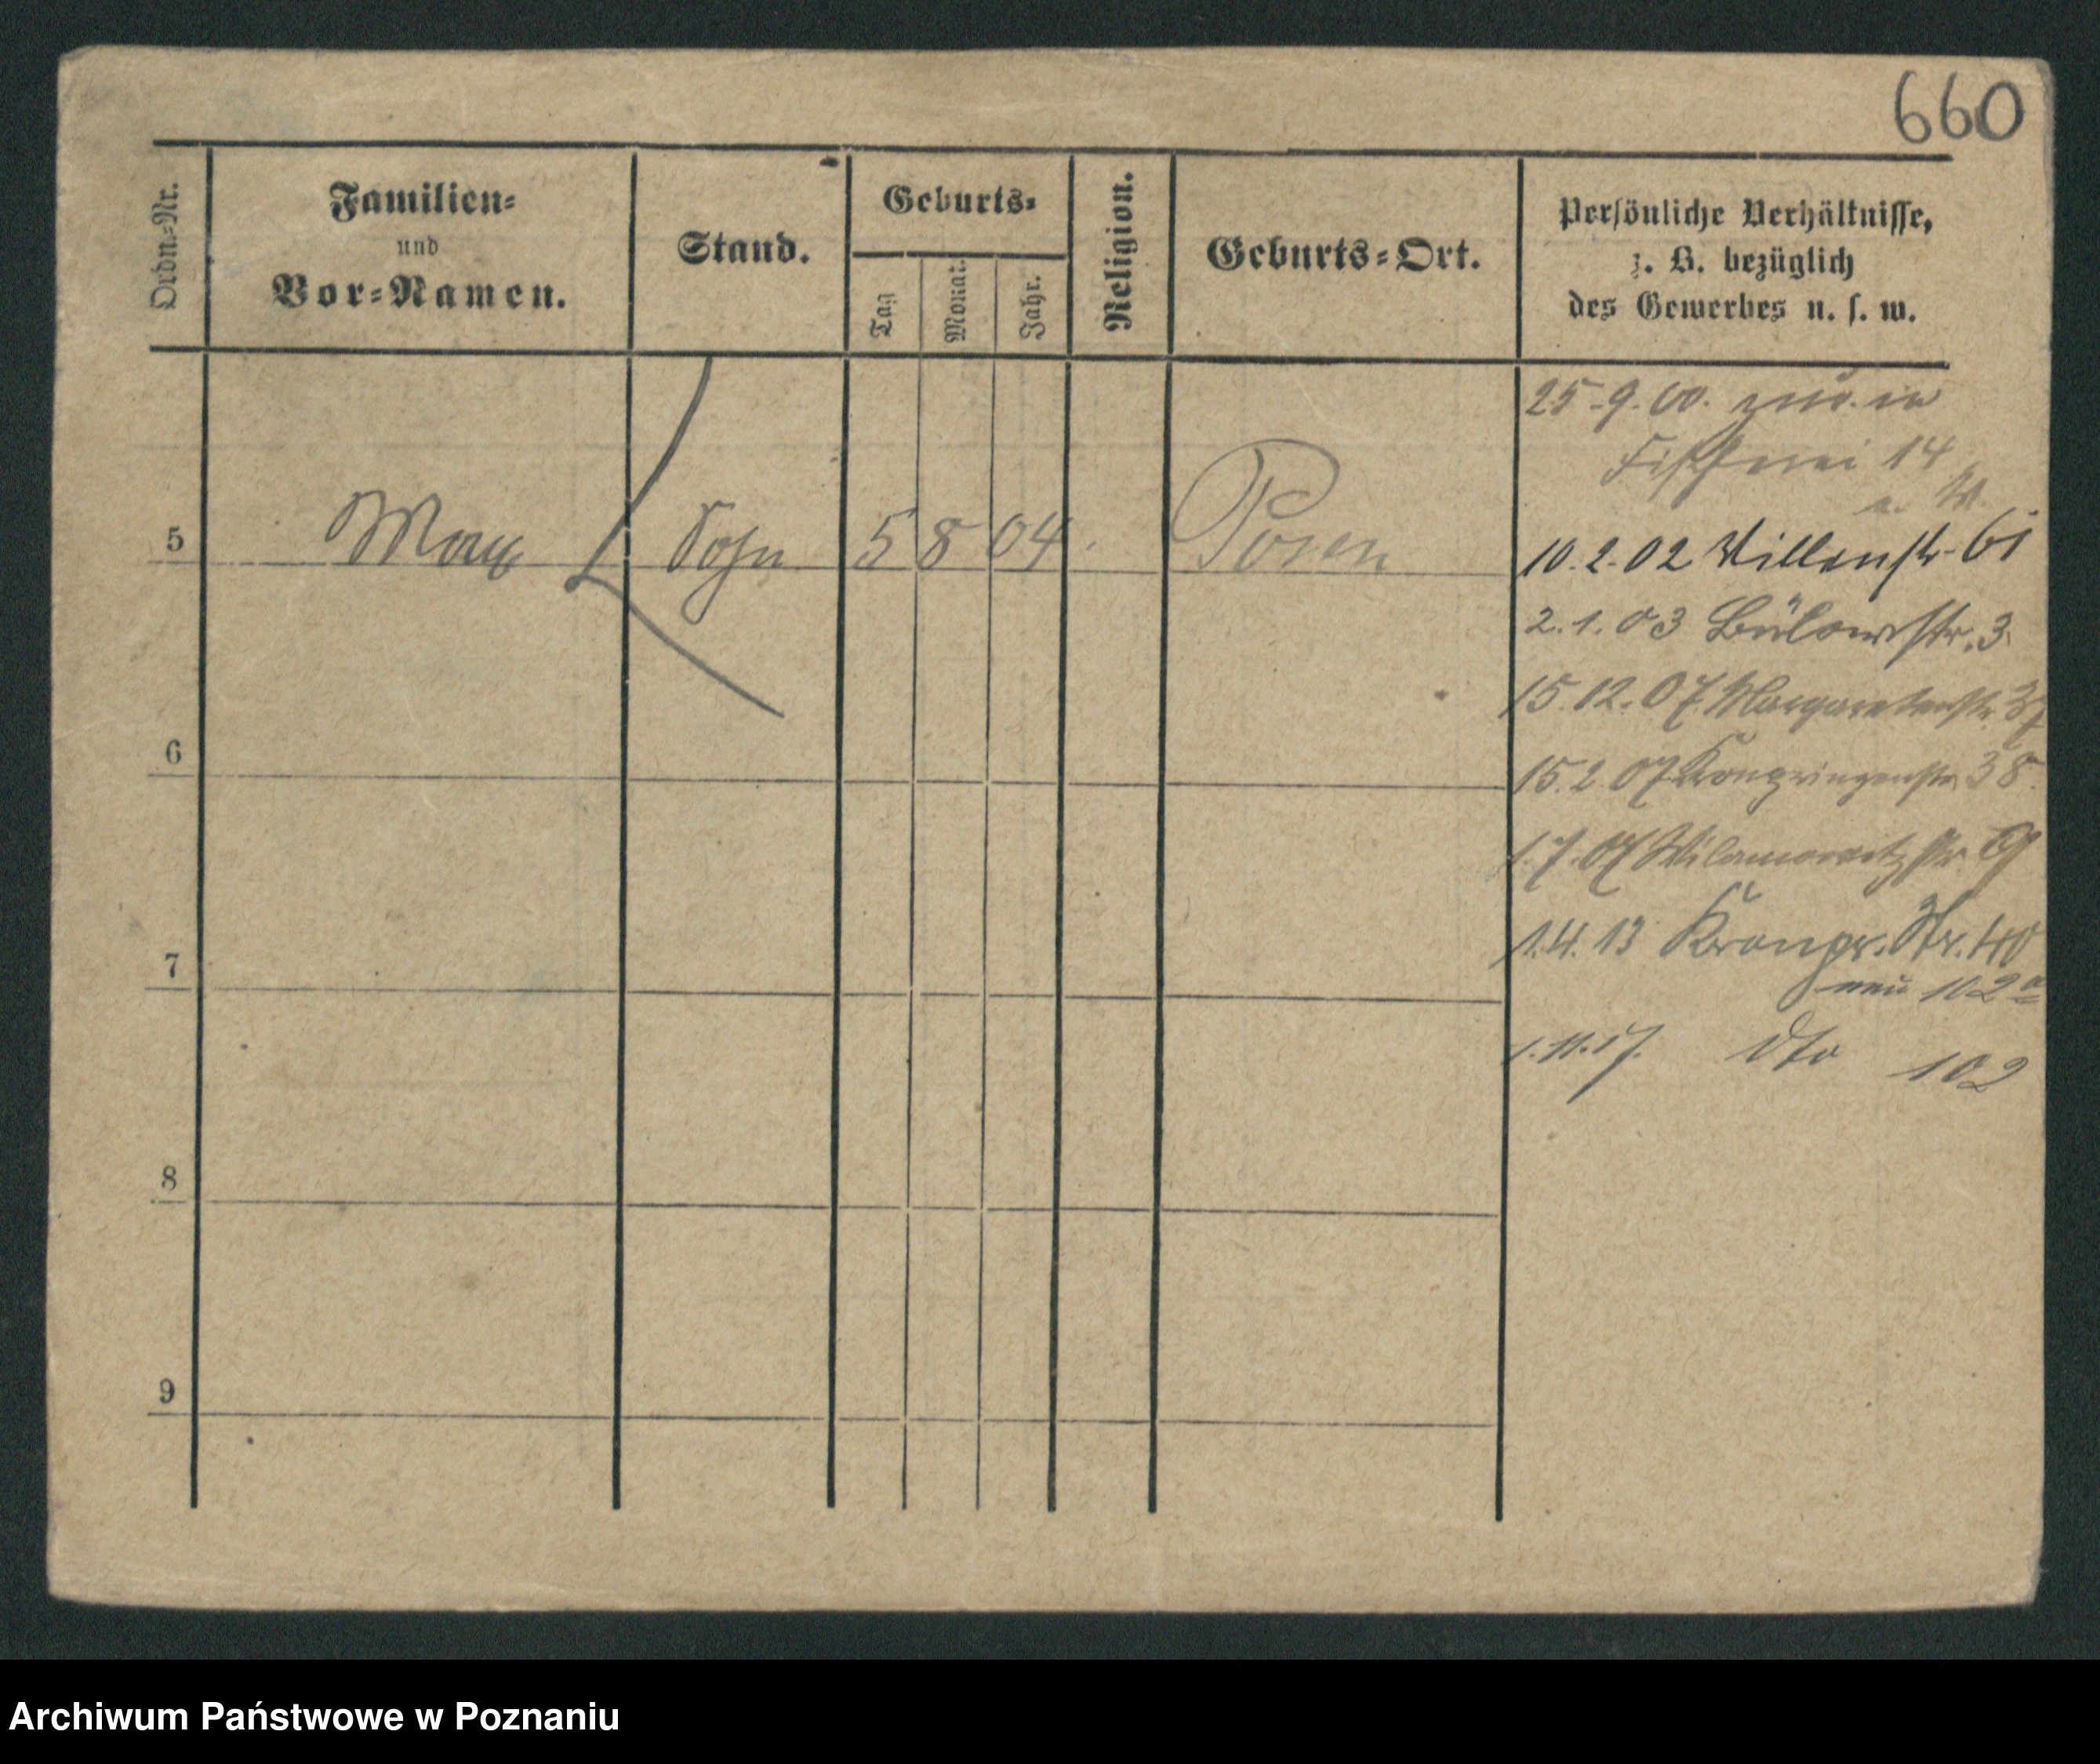 660
Ordn.-Nr.
Familien-
und
Vor-Namen.
Stand.
Geburts-
Tag
Monat.
Jahr.
Religion.
Geburts-Ort.
Persönliche Verhältnisse,
z. B. bezüglich
des Gewerbes u. s. w.
25-9.00. in
Fischerei 14
5 Max Sohn 5 8 04. Posen
10.2.02 61
2.1.03 Bülowstr. 3
15.12.07 Margaretenstr. 37
6
15.2 07 Kronprinzenstr. 38.
1.7.07 Wilamowitzstr. 9
7
1.4.13 Kronpr. Str. 40
neu 102a
1.11.17. dto 102
8
9
Archiwum Państwowe w Poznaniu